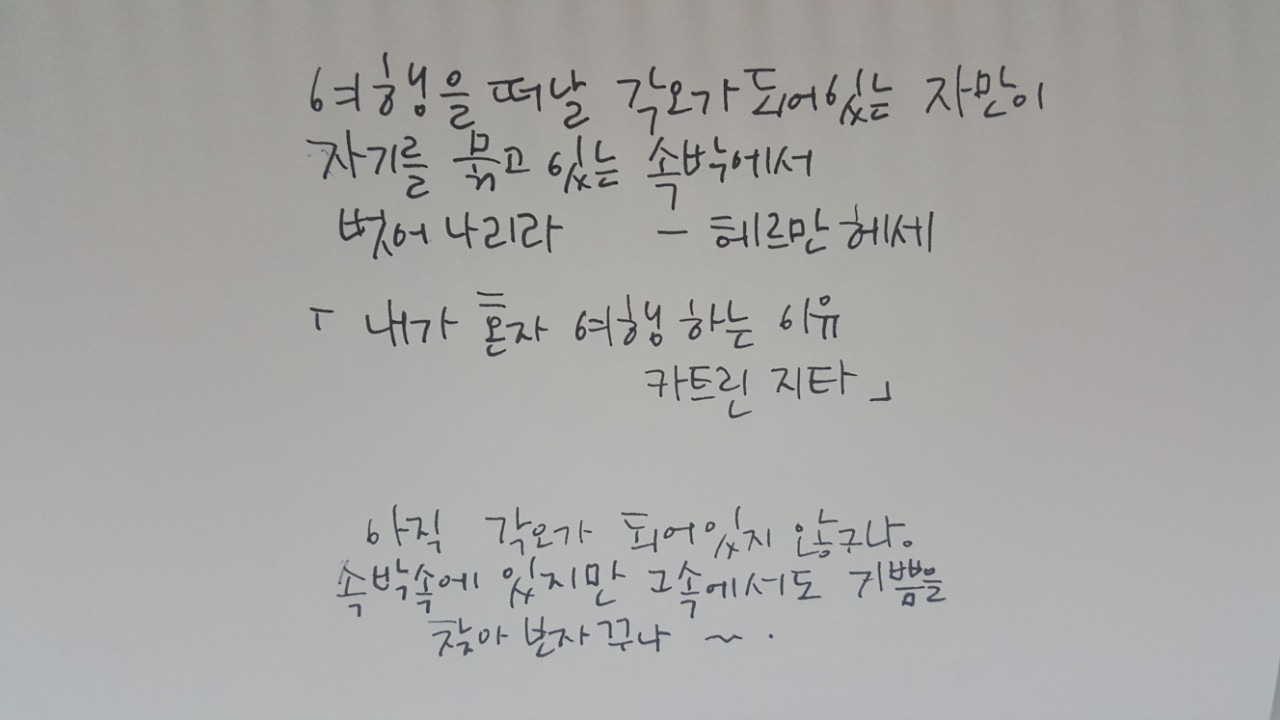 여행을 떠날 각오가 되어있는 자만이
자기를 묶고 있는 속박에서
벗어 나리라 - 헤르만 헤세
「 내가 혼자 여행 하는 이유
카트린 지타 」
아직 각오가 되어있지 않구나.
속박속에 있지만 그속에서도 기쁨을
찾아 보자꾸나 ~ .